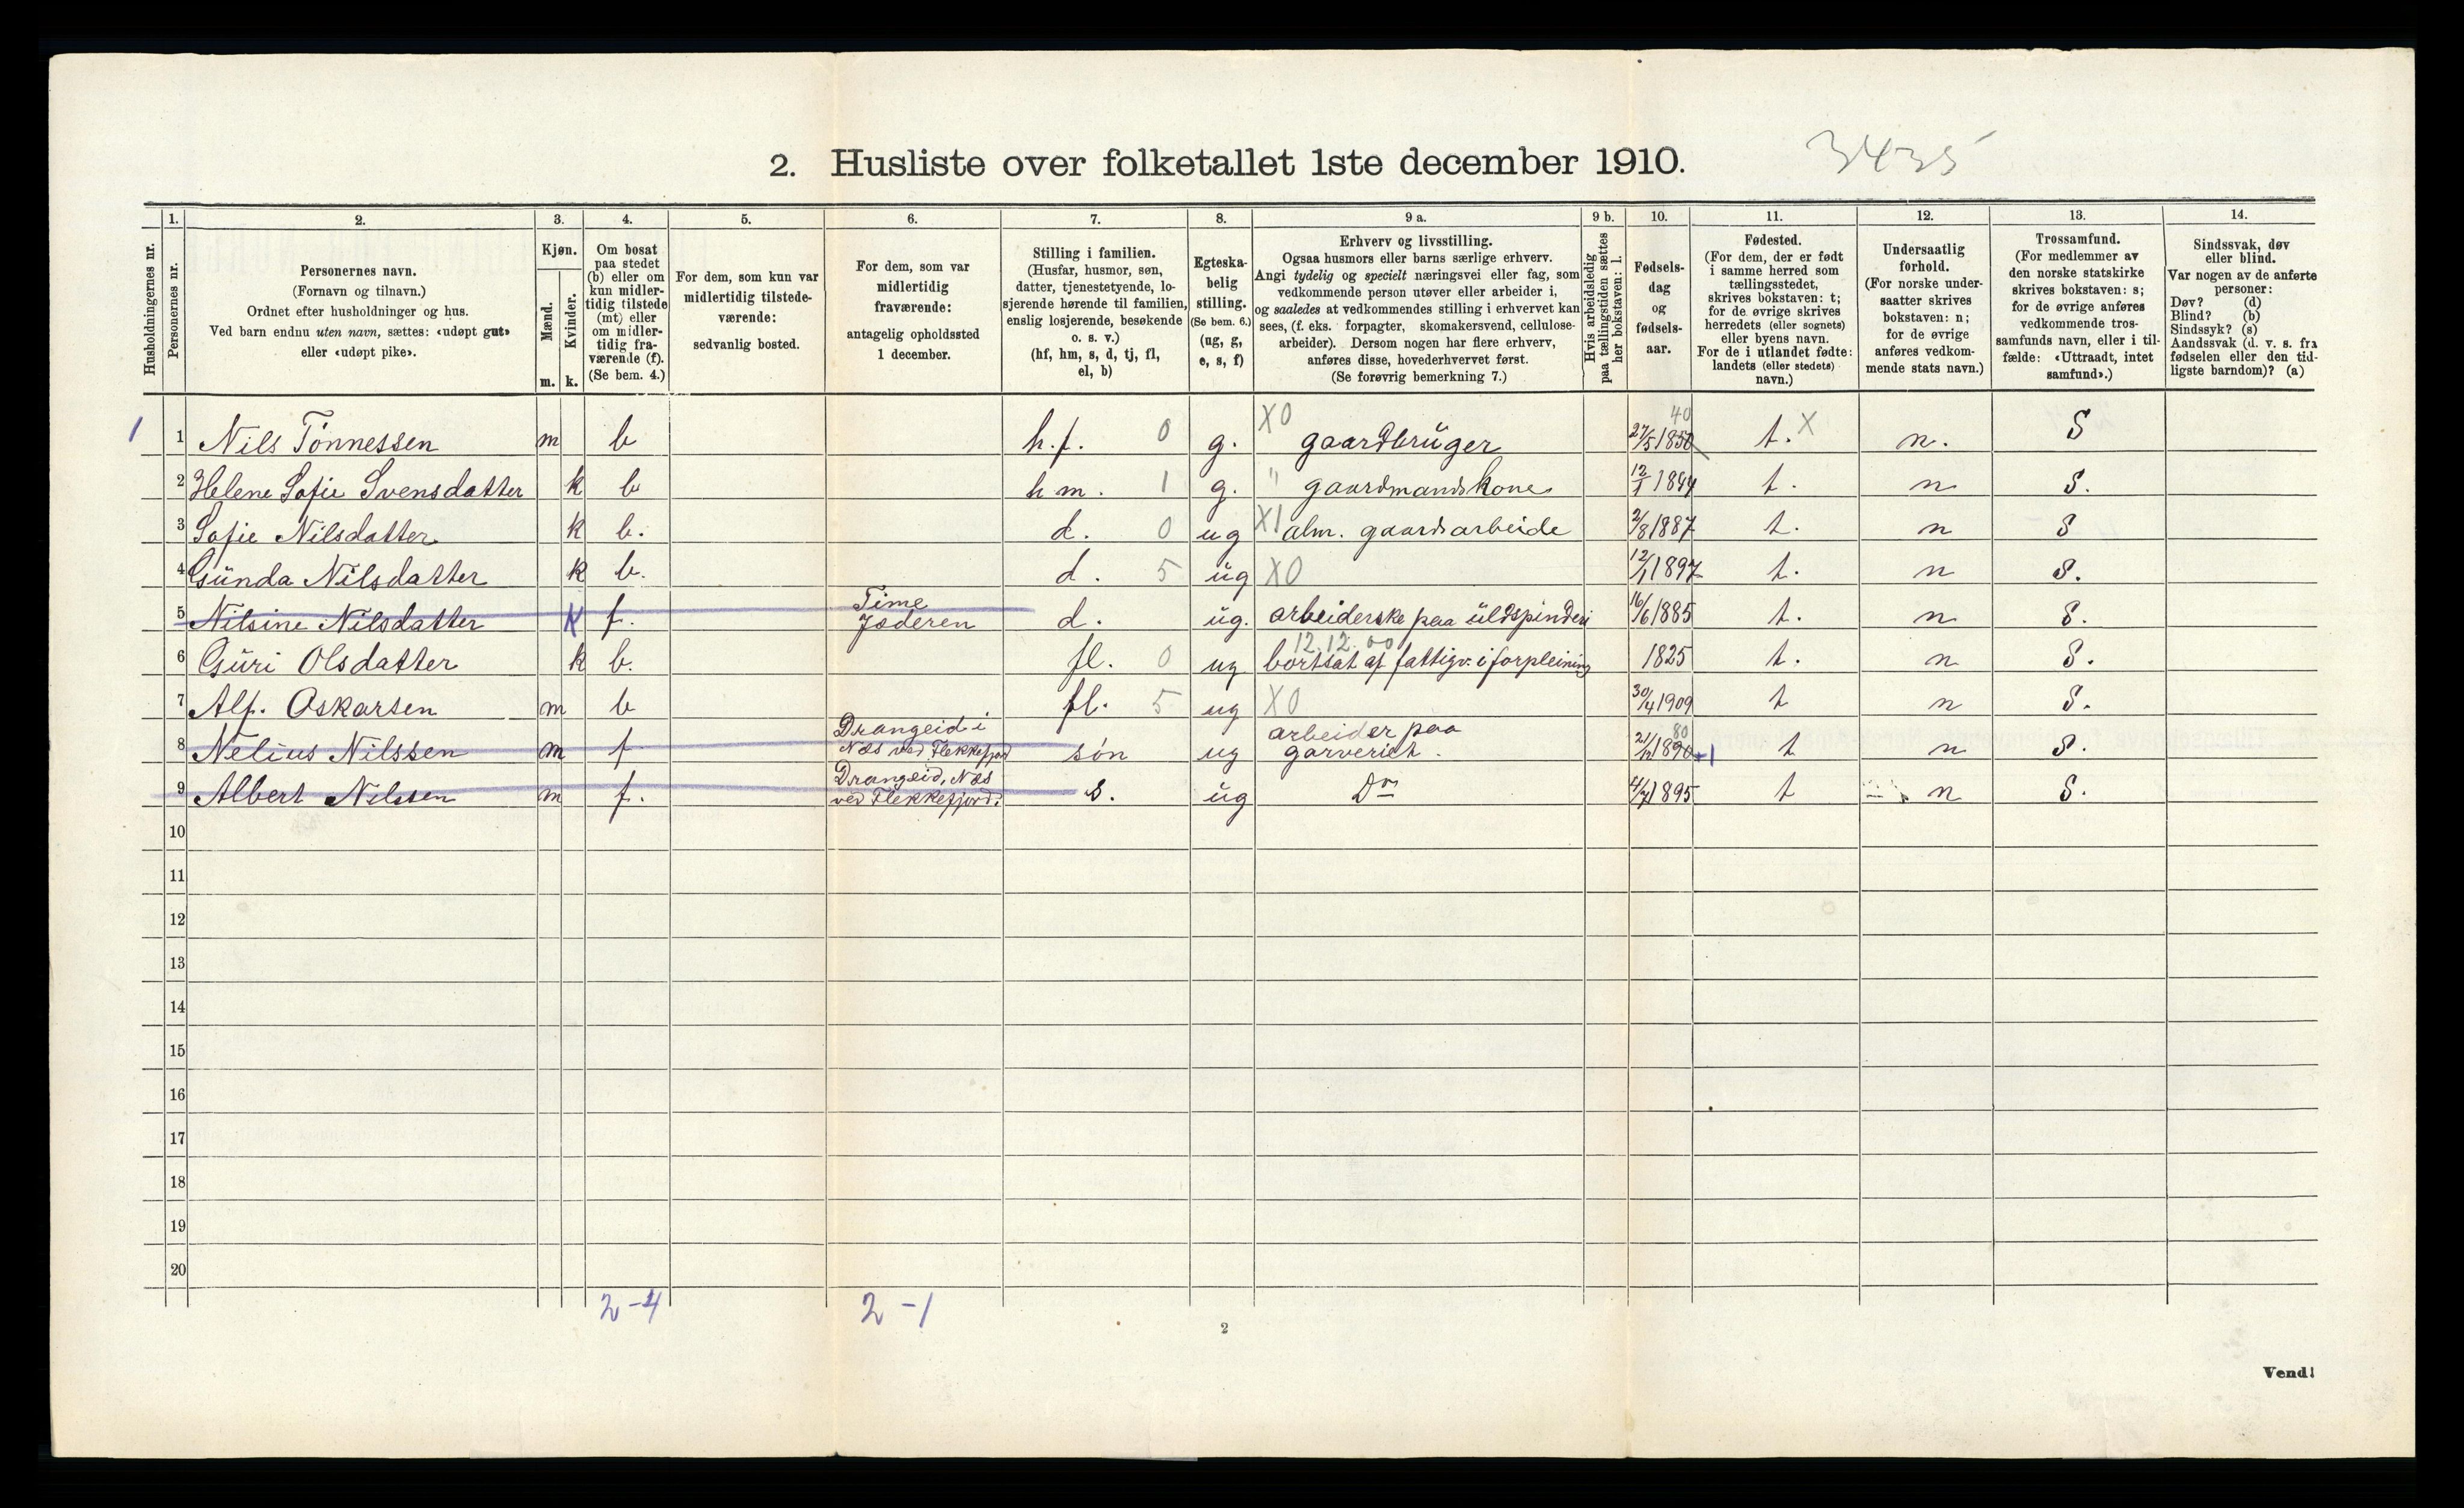 2. Husliste over folketallet 1ste december 1910.
3435
1. 2. 3. 4. 5. 6. 7. 8. 9 a. 9 b. 10. 11. 12. 13. 14.
Husholdningernes nr.
Personernes nr.
Personernes navn.
(Fornavn og tilnavn.)
Ordnet efter husholdninger og hus.
Ved barn endnu uten navn, sættes: «udøpt gut»
eller «udøpt pike».
Kjøn.
Mænd.
Kvinder.
m. k.
Om bosat
paa stedet
(b) eller om
kun midler-
tidig tilstede
(mt) eller
om midler-
tidig fra-
værende (f).
(Se bem. 4.)
For dem, som kun var
midlertidig tilstede-
værende:
sedvanlig bosted.
For dem, som var
midlertidig
fraværende:
antagelig opholdssted
1 december.
Stilling i familien.
(Husfar, husmor, søn,
datter, tjenestetyende, lo-
sjerende hørende til familien,
enslig losjerende, besøkende
o. s. v.)
(hf, hm, s, d, tj, fl,
el, b)
Egteska-
belig
stilling.
(Se bem. 6.)
(ug, g,
e, s, f)
Erhverv og livsstilling.
Ogsaa husmors eller barns særlige erhverv.
Angi tydelig og specielt næringsvei eller fag, som
vedkommende person utøver eller arbeider i,
og saaledes at vedkommendes stilling i erhvervet kan
sees, (f. eks. forpagter, skomakersvend, cellulose-
arbeider). Dersom nogen har flere erhverv,
anføres disse, hovederhvervet først.
(Se forøvrig bemerkning 7.)
Hvis arbeidsledig
paa tællingstiden sættes
her bokstaven: l.
Fødsels-
dag
og
fødsels-
aar.
Fødested.
(For dem, der er født
i samme herred som
tællingsstedet,
skrives bokstaven: t;
for de øvrige skrives
herredets (eller sognets)
eller byens navn.
For de i utlandet fødte:
landets (eller stedets)
navn.)
Undersaatlig
forhold.
(For norske under-
saatter skrives
bokstaven: n;
for de øvrige
anføres vedkom-
mende stats navn.)
Trossamfund.
(For medlemmer av
den norske statskirke
skrives bokstaven: s;
for de øvrige anføres
vedkommende tros-
samfunds navn, eller i til-
fælde: «Uttraadt, intet
samfund».)
Sindssvak, døv
eller blind.
Var nogen av de anførte
personer:
Døv? (d)
Blind? (b)
Sindssyk? (s)
Aandssvak (d. v. s. fra
fødselen eller den tid-
ligste barndom)? (a)
1 1 Nils Tønnessen m b h.f. 0 g. X0 gaardbrüger 27/5 1850 40 t. X n. S
2 Helene Sofie Svensdatter k b h m. 1 g. " gaardmandskone 12/1 t. n S.
3 Sofie Nilsdatter k b. d. 0 ug X1 alm. gaardsarbeide 2/8 1887 t. n S
4 Günda Nilsdatter k b. d. 5 üg X0 12/1 1897 t. n S.
5 Nilsine Nilsdatter k f. Time Jæderen d. üg. arbeiderske paa üldspinderi 16/6 1885 t. n S.
12.12.00
6 Güri Olsdatter k b. fl. 0 ug bortsat af fattigv. i forpleining 1825 t. n S.
7 Alf. Oskarsen m b fl. 5 ug X0 30/4 1909 t n S.
8 Nelius Nilssen m f Drangeid i Næs ved Flekkefjord søn ug arbeider paa garveriet. 21/12 1890 80 +1 t n S.
9 Albert Nilssen m f. Drangeid, Næs ved Flekkefjord. s. üg Do 4/7 1895 t n S.
10
11
12
13
14
15
16
17
18
19
20
2-4 2-1
2
Vend!